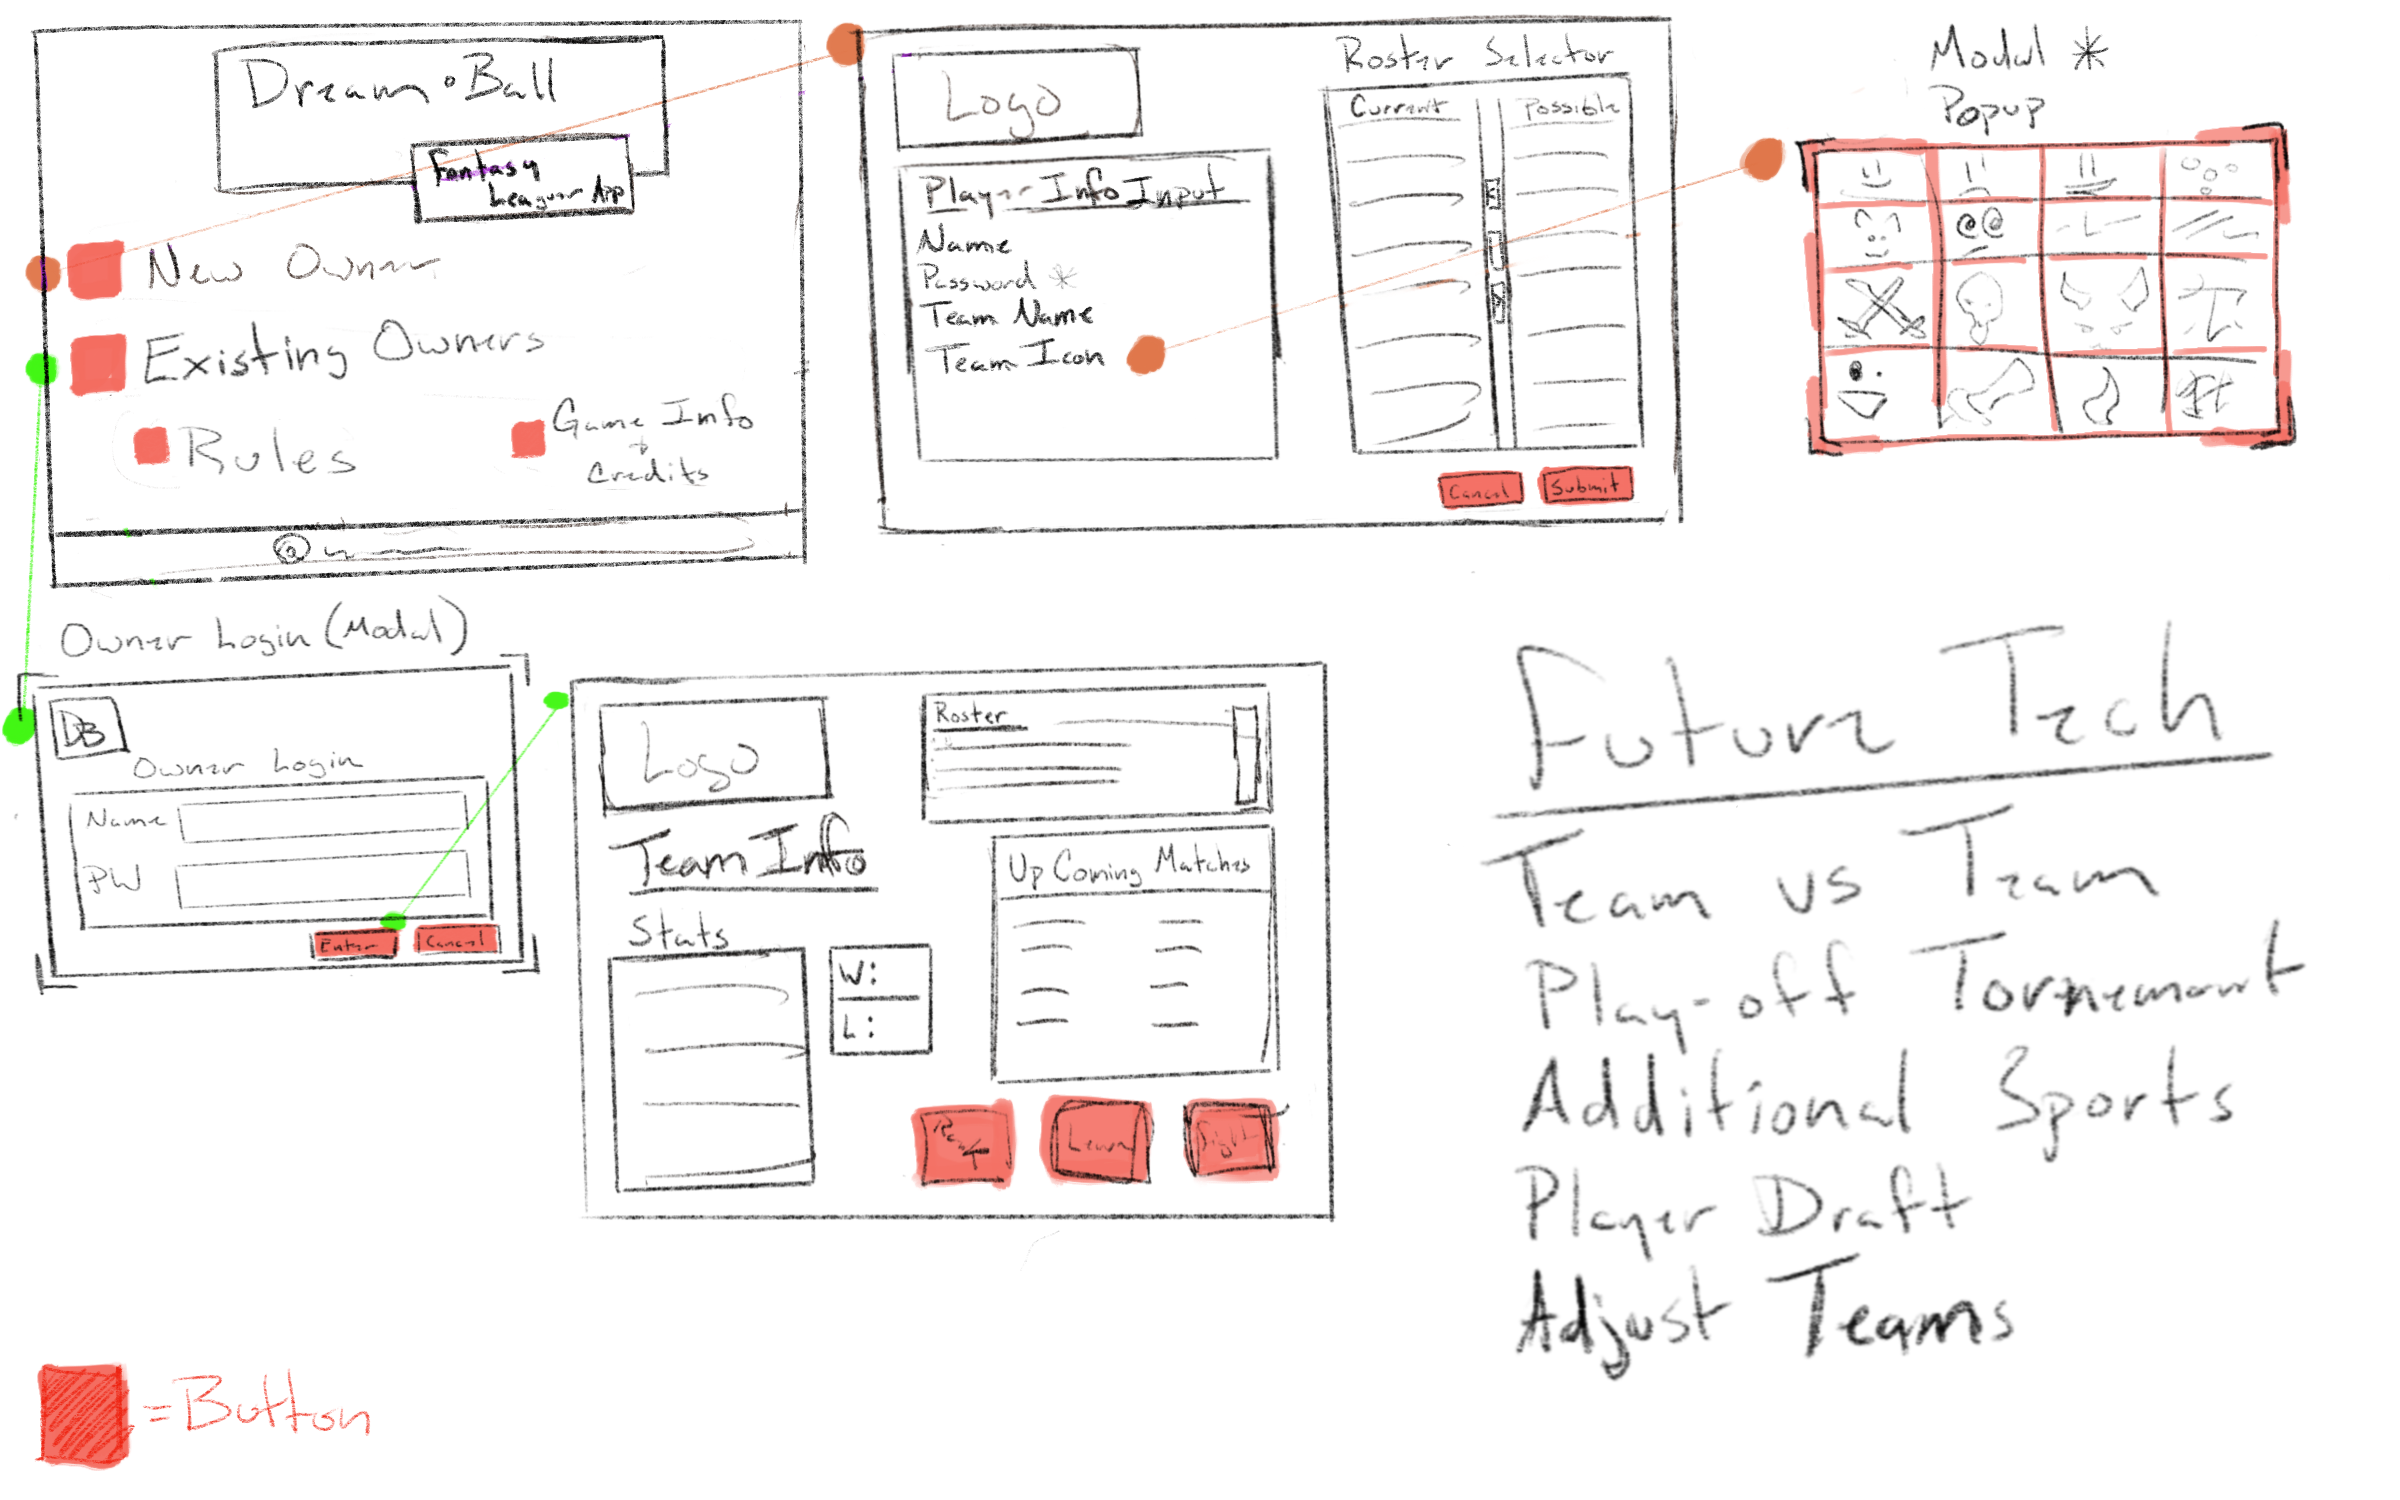 Dream • Ball
Fantasy
League App
New Owner
Existing Owners
Rules
Game Info
+
Credits
@
Logo
Player Info Input
Name
Password *
Team Name
Team Icon
Roster Selector
Current
Possible
Cancel
Submit
Modal *
Popup
Owner Login (Modal)
DB
Owner Login
Name
PW
Enter
Cancel
Logo
Team Info
Stats
W:
L:
Roster
Up Coming Matches
Future Tech
Team vs Team
Play-off Tornemant
Additional Sports
Player Draft
Adjust Teams
= Button